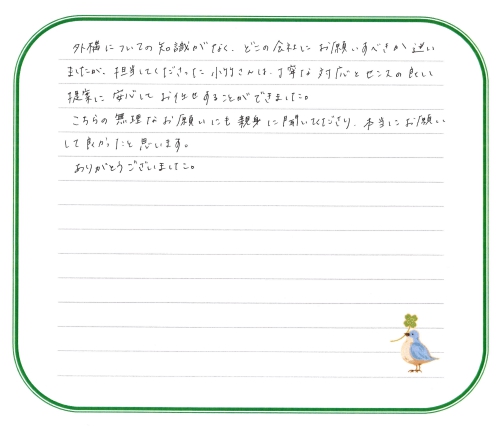 外構についての知識がなく、どこの会社にお願いすべきか迷い
ましたが、担当してくださった小竹さんは、丁寧な対応とセンスの良い
提案に安心してお任せすることができました。
こちらの無理なお願いにも親身に聞いてくださり、本当にお願い
して良かったと思います。
ありがとうございました。